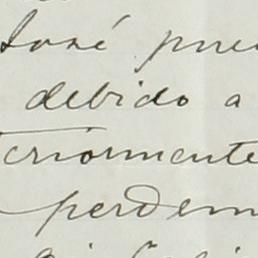 José pue
debido a
teriormente
perdem